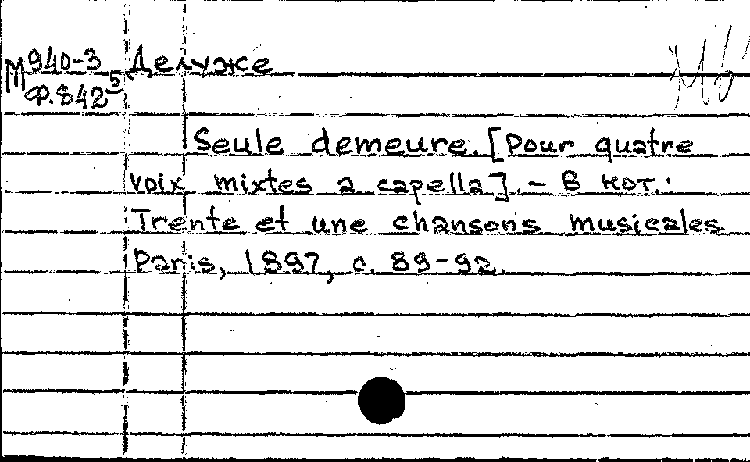 М 940-3 Делуже
Ф.842 5
Seule demeure. [Pour quatre
voix mixtes a capella]. - В кот.:
Trente et une chansons musicales
Paris, 1897, с. 89-92.